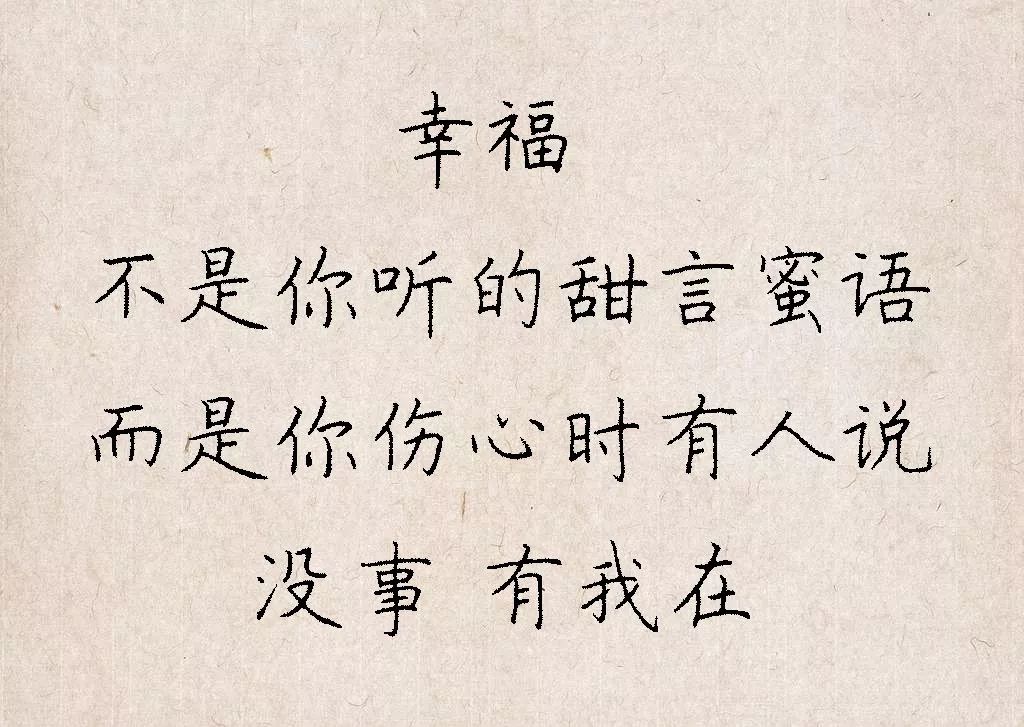 幸福
不是你听的甜言蜜语
而是你伤心时有人说
没事 有我在